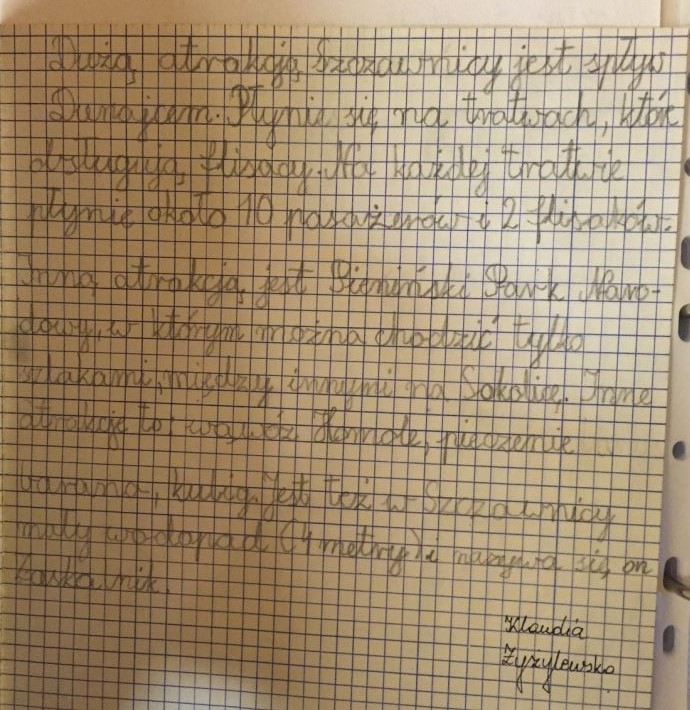 Dużą atrakcją Szczawnicy jest spływ
Dunajcem. Płynie się na tratwach, któr
obsługują flisacy. Na każdej tratwie
płynie około 10 pasażerów i 2 flisaków.
Inną atrakcją jest Pieniński Park Naro-
dowy, w którym można chodzić tylko
szlakami, między innymi na Sokolicę. Inne
atrakcje to: wąwóz Homole, pieczenie
barana, kulig. Jest też w Szczawnicy
mały wodopad (4 metry) i nazywa się on
Zaskalnik.
Klaudia
Zyzylewska